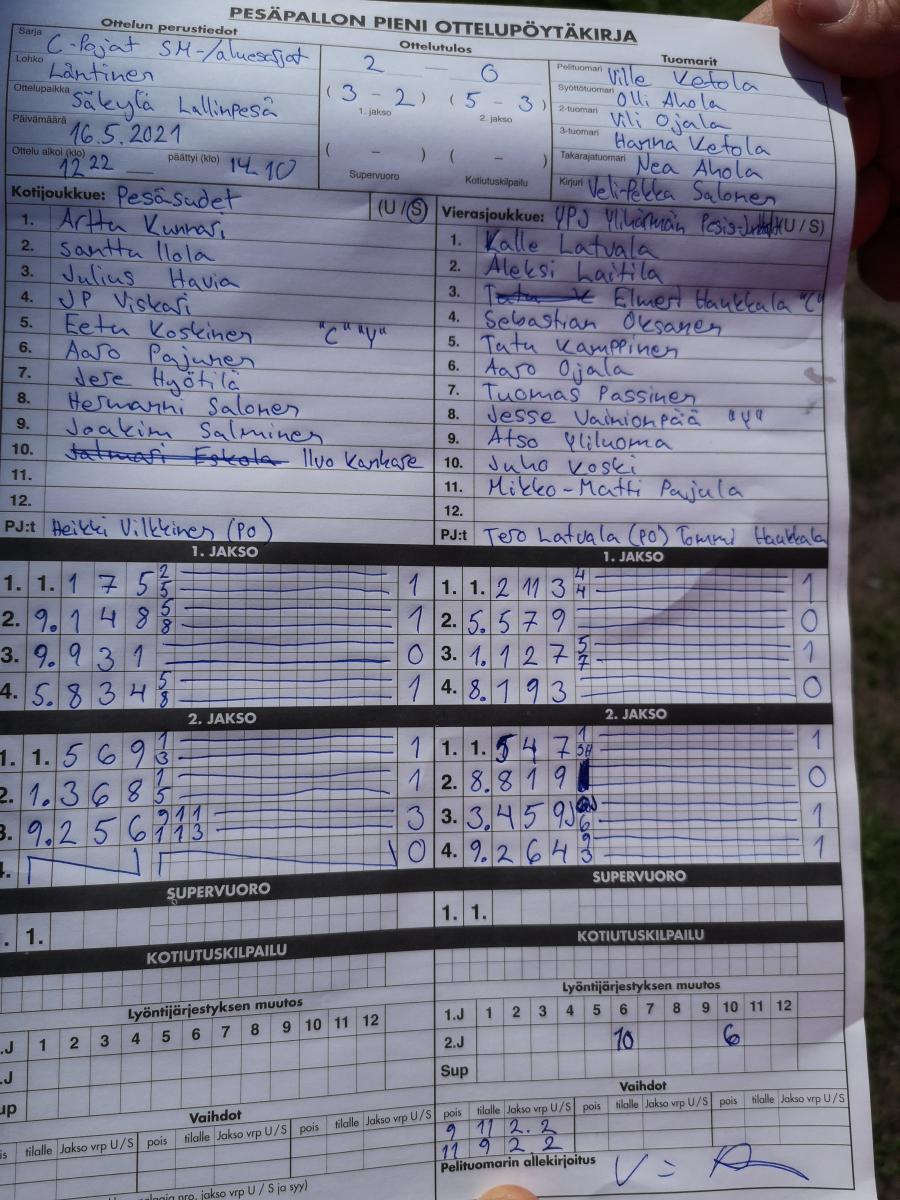 PESÄPALLON PIENI OTTELUPÖYTÄKIRJA
Ottelun perustiedot
Sarja C-Pojat SM-/aluesarjat
Lohko Läntinen
Ottelupaikka Säkylä Lallinpesä
Päivämäärä 16.5.2021
Ottelu alkoi (klo) 12 22 päättyi (klo) 14 10
Ottelutulos
2 — 0
(3 - 2) (5 - 3)
1. jakso 2. jakso
( - ) ( - )
Supervuoro Kotiutuskilpailu
Tuomarit
Pelituomari Ville Ketola
Syöttötuomari Olli Ahola
2-tuomari Vili Ojala
3-tuomari Hanna Ketola
Takarajatuomari Nea Ahola
Kirjuri Veli-Pekka Salonen
Kotijoukkue: Pesäsudet (U/S)
1. Arttu Kunnari
2. Santtu Ilola
3. Julius Havia
4. JP Viskari
5. Eetu Koskinen "C" "Y"
6. Aaro Pajunen
7. Jese Hyötilä
8. Hermanni Salonen
9. Joakim Salminen
10. Jalmari Eskola Ilvo Kankare
11.
12.
PJ:t Heikki Vilkkinen (PO)
Vierasjoukkue: YPJ Ylihärmän (U/S)
1. Kalle Latvala
2. Aleksi Laitila
3. Elmeri Haukkala "C"
4. Sebastian Oksanen
5. Tatu Kamppinen
6. Aaro Ojala
7. Tuomas Passinen
8. Jesse Vainionpää "Y"
9. Atso Yliluoma
10. Juho Koski
11. Mikko-Matti Pajula
12.
PJ:t Tero Latvala (PO) Tommi Haukkala
1. JAKSO
1. 1. 1 7 5 2 5 1
2. 9. 1 4 8 5 8 1
3. 9. 9 3 1 0
4. 5. 8 3 4 5 8 1
2. JAKSO
1. 1. 5 6 9 1 3 1
2. 1. 3 6 8 1 5 1
3. 9. 2 5 6 9 11 1 1 3 3
4. 0
SUPERVUORO
1. 1.
KOTIUTUSKILPAILU
Lyöntijärjestyksen muutos
1.J 1 2 3 4 5 6 7 8 9 10 11 12
2.J
Sup
Vaihdot
pois tilalle Jakso vrp U/S pois tilalle Jakso vrp U/S pois tilalle Jakso vrp U/S
nro, jakso vrp U / S ja syy)
1. JAKSO
1. 1. 2 11 3 4 4 1
2. 5. 5 7 9 0
3. 1. 1 2 7 5 7 1
4. 8. 1 9 3 0
2. JAKSO
1. 1. 5 4 7 1 1
2. 8. 8 1 9 0
3. 3. 4 5 9 6 1
4. 9. 2 6 4 9 3 1
SUPERVUORO
1. 1.
KOTIUTUSKILPAILU
Lyöntijärjestyksen muutos
1.J 1 2 3 4 5 6 7 8 9 10 11 12
2.J 10 6
Sup
Vaihdot
pois tilalle Jakso vrp U/S pois tilalle Jakso vrp U/S pois tilalle Jakso vrp U/S
9 11 2. 2
11 9 2. 2
Pelituomarin allekirjoitus